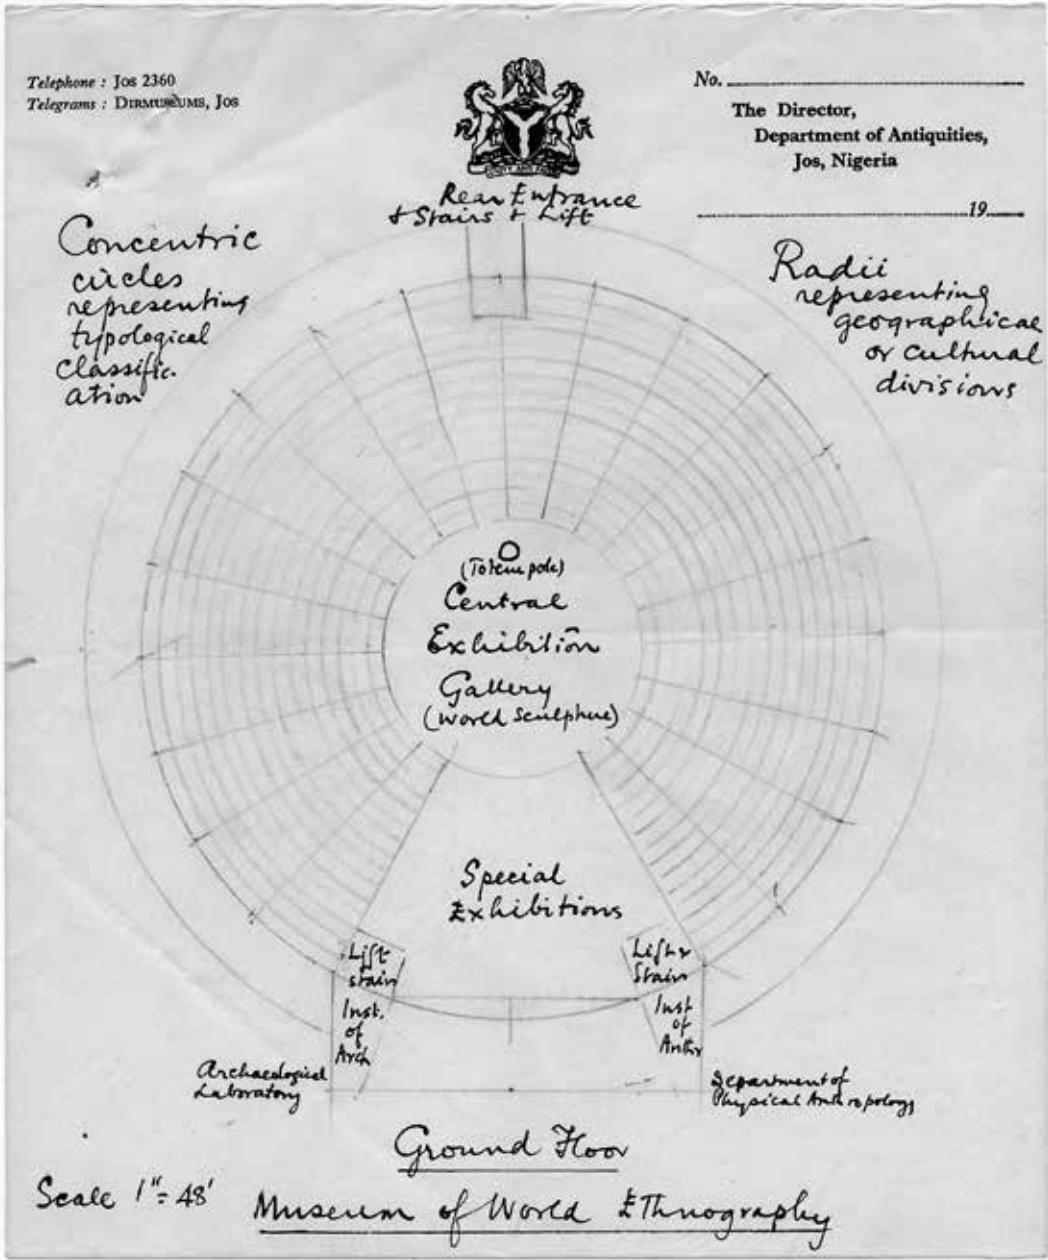 Telephone : Jos 2360
Telegrams : Dirmuseums, Jos
No.
The Director,
Department of Antiquities,
Jos, Nigeria
19
Rear Entrance
& Stairs & Lift
Concentric
circles
representing
typological
classific-
ation
Radii
representing
geographical
or cultural
divisions
(Totem pole)
Central
Exhibition
Gallery
(World Sculpture)
Special
Exhibitions
Lift
stairs
Inst.
of
Arch
Lift &
Stairs
Inst
of
Anthr
Archaeological
Laboratory
Department of
Physical Anthropology
Ground Floor
Scale 1" = 48'
Museum of World Ethnography